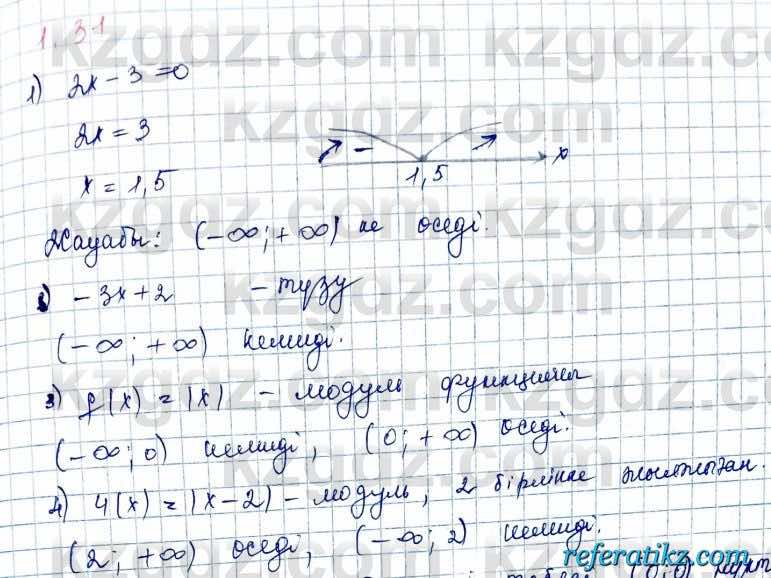 1.31
1) 2x - 3 = 0
2x = 3
x = 1,5
- x
1,5
Жауабы: (-∞; +∞) не өседі.
2) -3x + 2 - түзу
(-∞; +∞) кемиді.
3) f(x) = |x| - модуль функциясы
(-∞; 0) кемиді, (0; +∞) өседі.
4) 4(x) = |x - 2| - модуль, 2 бірлікке жылжыған.
(2; +∞) өседі, (-∞; 2) кемиді.
kzgdz.com
referatikz.com